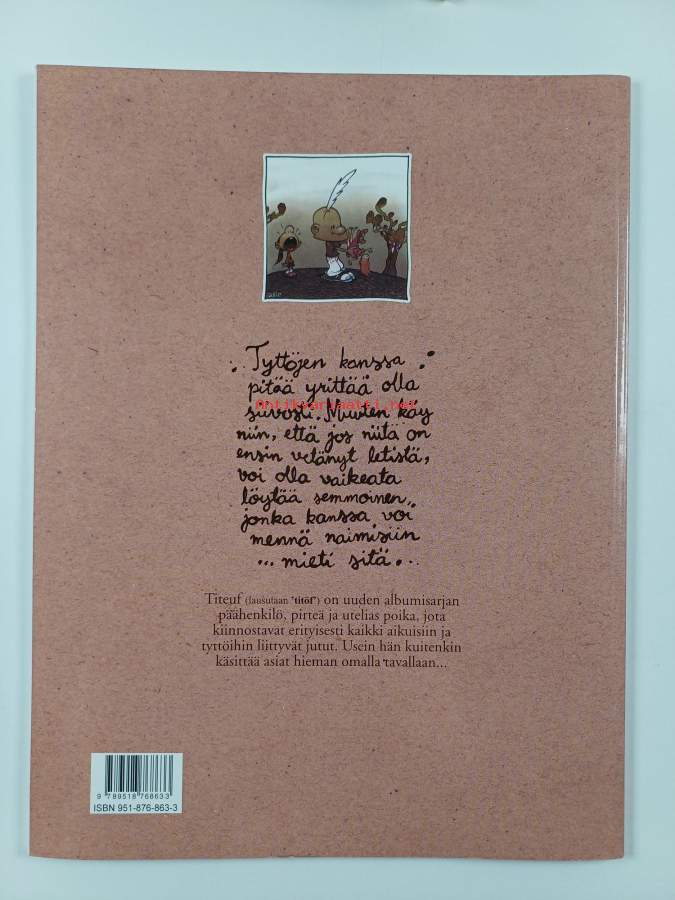 Tyttöjen kanssa
pitää yrittää olla
siivosti. Muuten käy
Antikvariaatti.net
niin, että jos niitä on
ensin vetänyt letistä,
voi olla vaikeata
löytää semmoinen,
jonka kanssa voi
mennä naimisiin
... mieti sitä...
Titeuf (lausutaan 'titöf') on uuden albumisarjan
päähenkilö, pirteä ja utelias poika, jota
kiinnostavat erityisesti kaikki aikuisiin ja
tyttöihin liittyvät jutut. Usein hän kuitenkin
käsittää asiat hieman omalla tavallaan...
9 789518 768633
ISBN 951-876-863-3